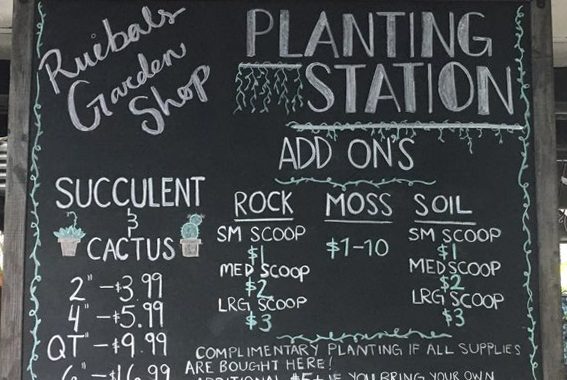 Ruibals
Garden
Shop
PLANTING
STATION
ADD ON'S
SUCCULENT
&
CACTUS
2" - $3.99
4" - $5.99
QT - $9.99
6" - $16.99
ROCK
SM SCOOP
$1
MED SCOOP
$2
LRG SCOOP
$3
MOSS
$1-10
SOIL
SM SCOOP
$1
MED SCOOP
$2
LRG SCOOP
$3
COMPLIMENTARY PLANTING IF ALL SUPPLIES
ARE BOUGHT HERE!
ADDITIONAL $5+ IF YOU BRING YOUR OWN